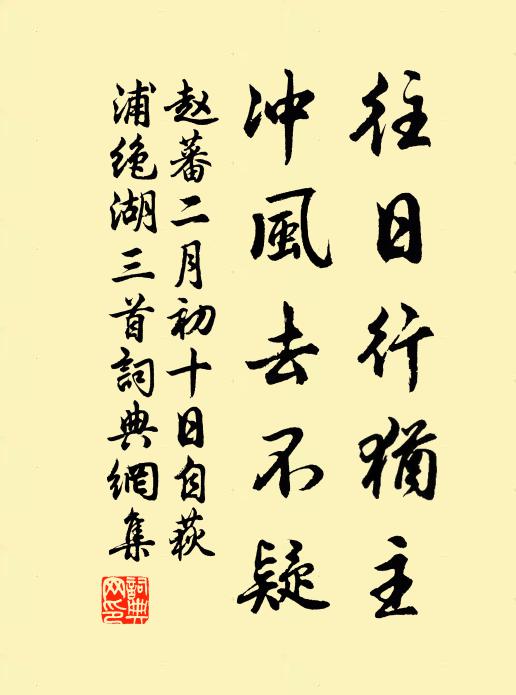 往日行猶主
冲風去不疑
赵蕃二月初十日自荻
浦绝湖三首詞典網集
詞典網印